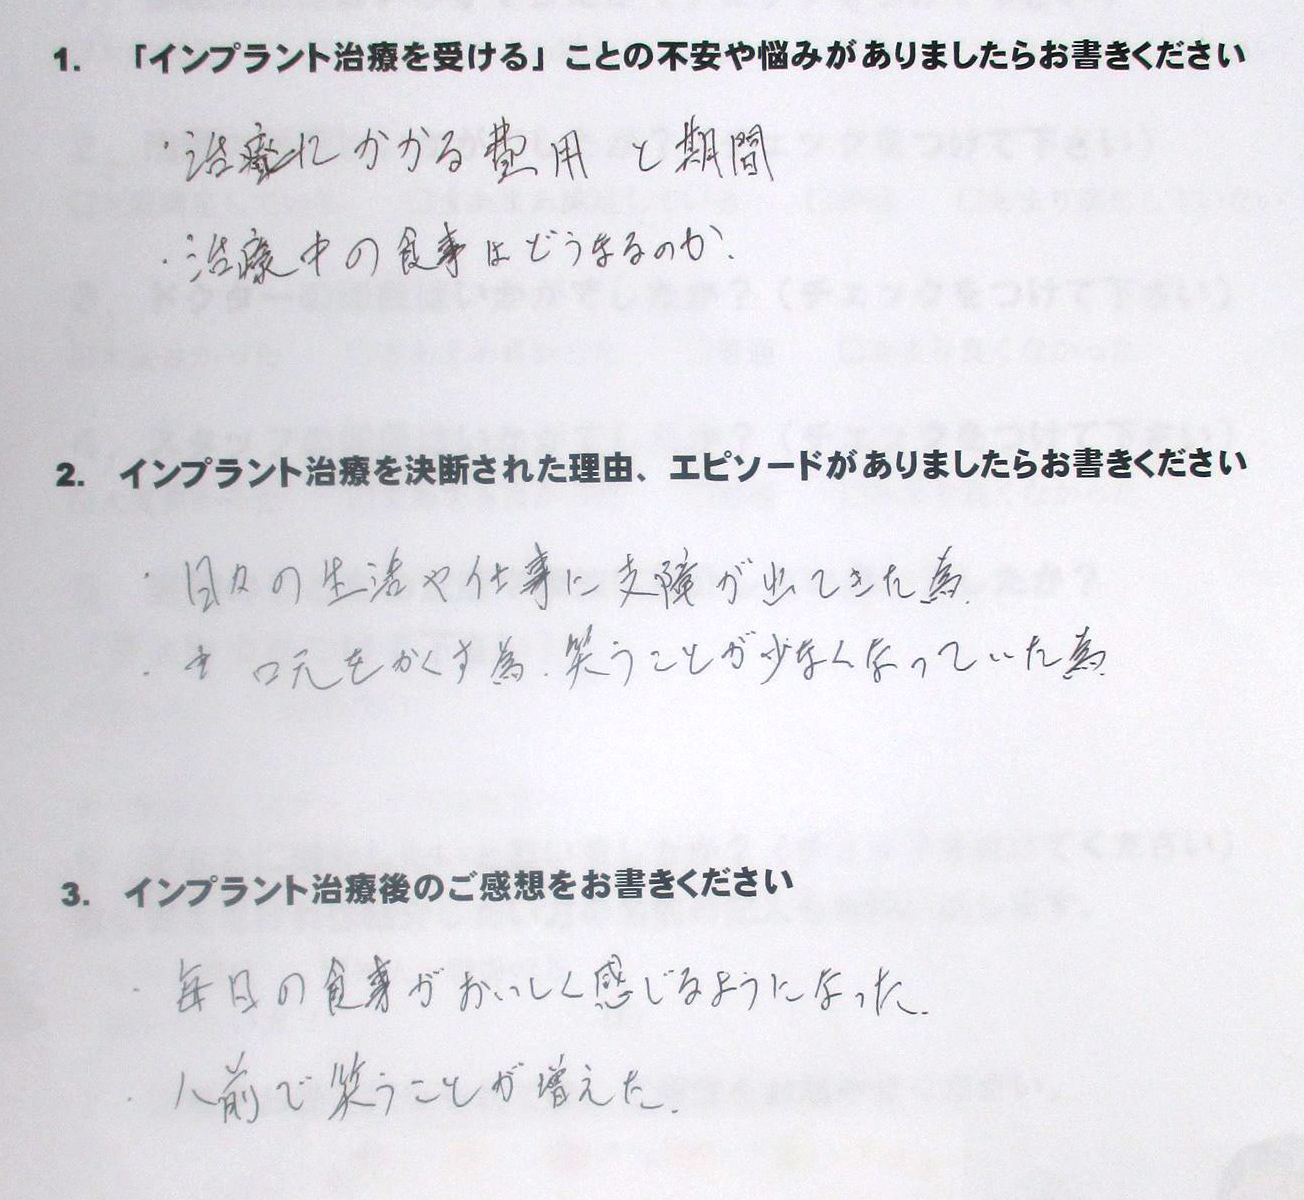 1. 「インプラント治療を受ける」ことの不安や悩みがありましたらお書きください
・治療にかかる費用と期間
・治療中の食事はどうするのか.
2. インプラント治療を決断された理由、エピソードがありましたらお書きください
・日々の生活や仕事に支障が出てきた為.
・口元をかくす為.笑うことが少なくなっていた為.
3. インプラント治療後のご感想をお書きください
・毎日の食事がおいしく感じるようになった.
・人前で笑うことが増えた.